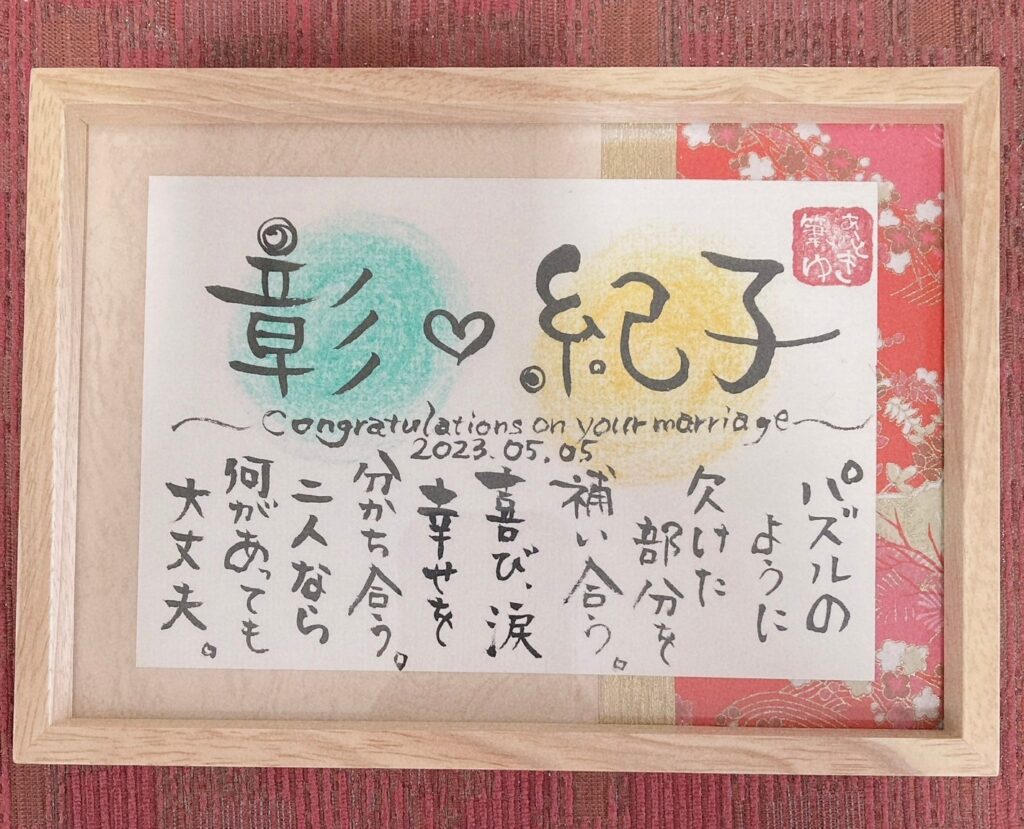 彰♡紀子
Congratulations on your marriage
2023.05.05
パズルの
ように
欠けた
部分を
補い合う。
喜び、涙
幸せを
分かち合う。
二人なら
何があっても
大丈夫。